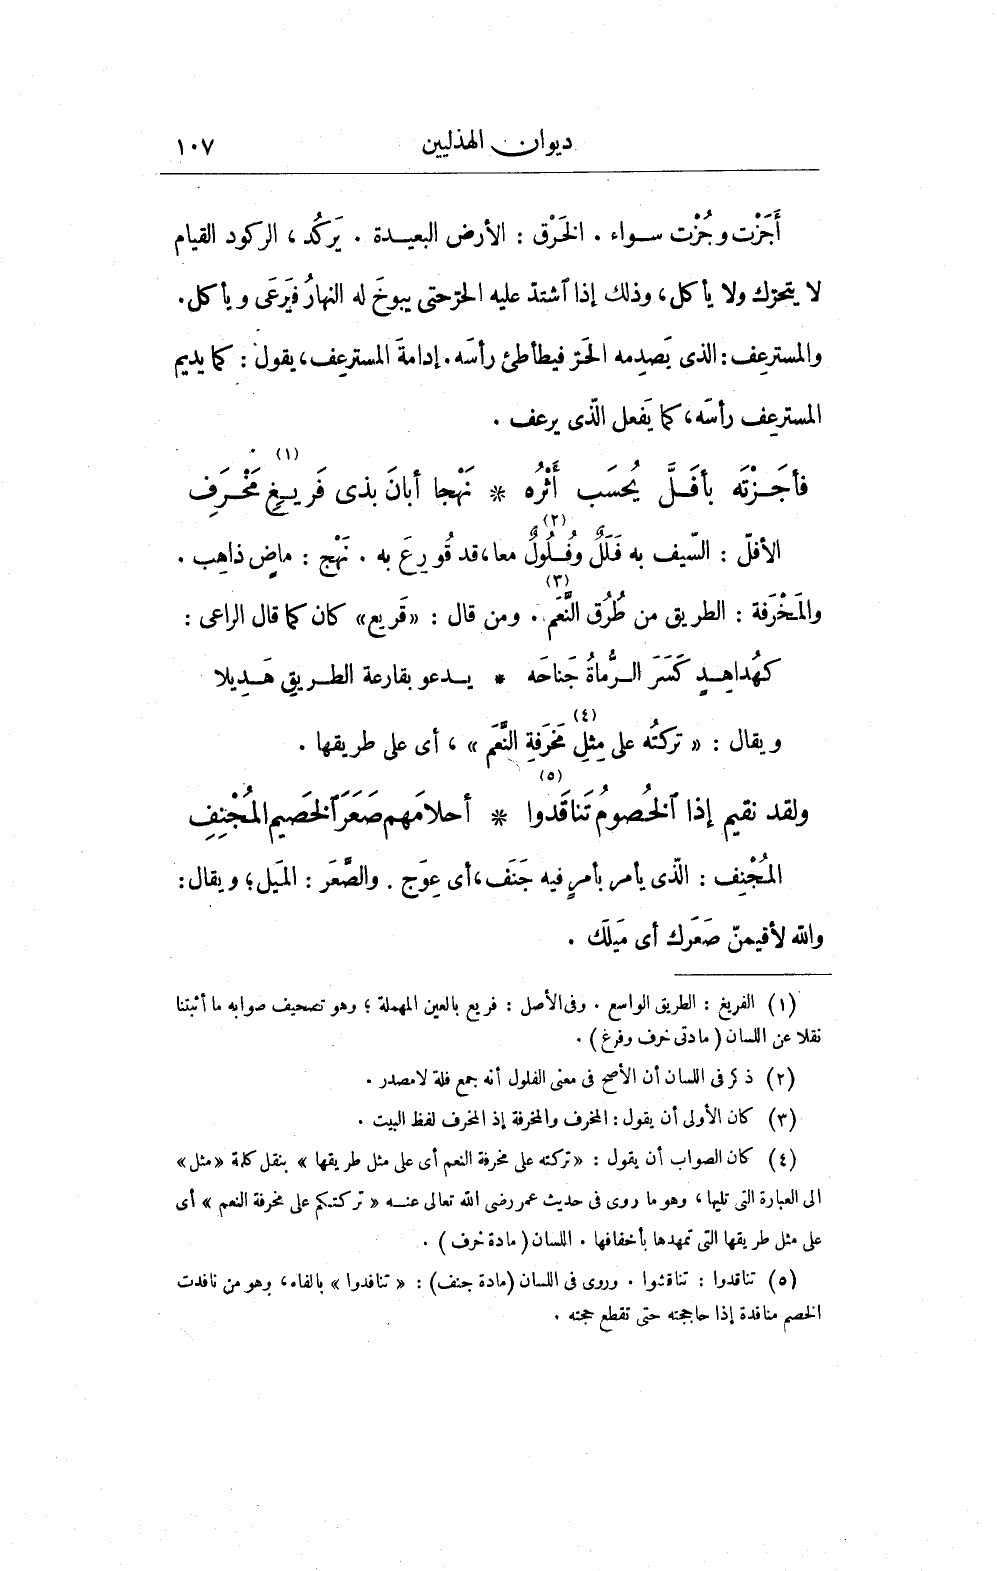 ديوان الهذليين ١٠٧
أَجَزْت وجُزْت سواء . الخَرْق : الأرض البعيدة . يَركُد ، الركود القيام
لا يتحرّك ولا يأكل، وذلك إذا ٱشتدّ عليه الحرّ حتى يبوخَ له النهارُ فيَرعَى ويأكل.
والمسترعِف : الذى يَصدِمه الحَرّ فيطأطئ رأسَه . إدامةَ المسترعِف، يقول : كما يديم
المسترعِف رأسَه، كما يَفعل الّذى يرعف .
(١)
فأجَزْتَه بأفَلَّ يُحسَب أَثْرُه * نَهْجا أبانَ بذى فَريغٍ مَخْرَفِ
(٢)
الأفلّ : السّيف به فَلَلٌ وفُلُولٌ معا، قد قُورِعَ به . نَهْج : ماضٍ ذاهِب .
(٣)
والمَخْرَفة : الطريق من طُرُق النَّعَم . ومن قال : «قَريع» كان كما قال الراعى :
كهُداهِدٍ كَسَرَ الرُّماةُ جَناحَه * يدعو بقارعة الطريقِ هَدِيلا
(٤)
ويقال : « تركتُه على مِثلِ مَخرَفةِ النَّعَم » ، أى على طريقها .
(٥)
ولقد نقيم إذا ٱلخُصومُ تَناقَدوا * أحلامَهم صَعَرَ ٱلخَصيمِ المُجْنِفِ
المُجْنِف : الّذى يأمر بأمرٍ فيه جَنَف، أى عِوَج . والصَّعَر : المَيل؛ ويقال :
والله لأقيمنّ صَعَرك أى مَيلَك .
(١) الفريغ : الطريق الواسع . وفى الأصل : فريع بالعين المهملة ؛ وهو تصحيف صوابه ما أثبتنا
نقلا عن اللسان ( مادتى خرف وفرغ ) .
(٢) ذكر فى اللسان أن الأصح فى معنى الفلول أنه جمع فلة لا مصدر .
(٣) كان الأولى أن يقول : المخرف والمخرفة إذ المخرف لفظ البيت .
(٤) كان الصواب أن يقول : «تركته على مخرفة النعم أى على مثل طريقها » بنقل كلمة «مثل»
الى العبارة التى تليها ، وهو ما روى فى حديث عمر رضى الله تعالى عنه « تركتكم على مخرفة النعم » أى
على مثل طريقها التى تمهدها بأخفافها . اللسان ( مادة خرف ) .
(٥) تناقدوا : تناقشوا . وروى فى اللسان (مادة جنف) : « تنافدوا » بالفاء، وهو من نافدت
الخصم منافدة إذا حاججته حتى تقطع حجته .